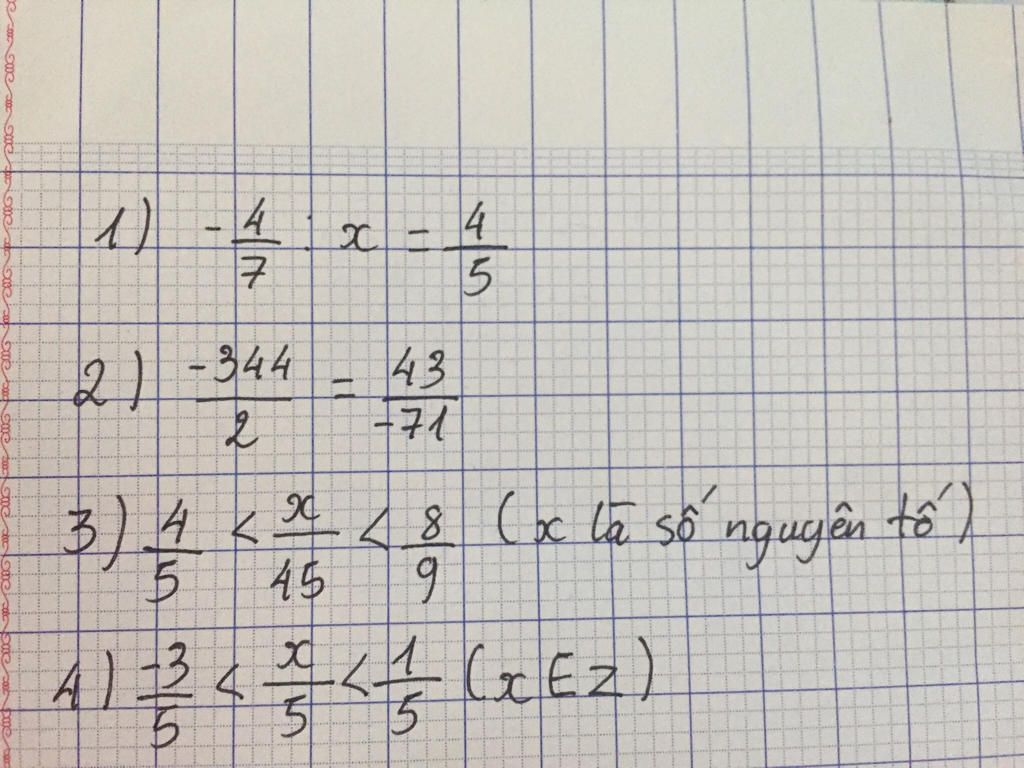 1) -4/7 : x = 4/5
2) -344/2 = 43/-71
3) 4/5 < x/45 < 8/9 (x là số nguyên tố)
4) -3/5 < x/5 < 1/5 (x ∈ Z)